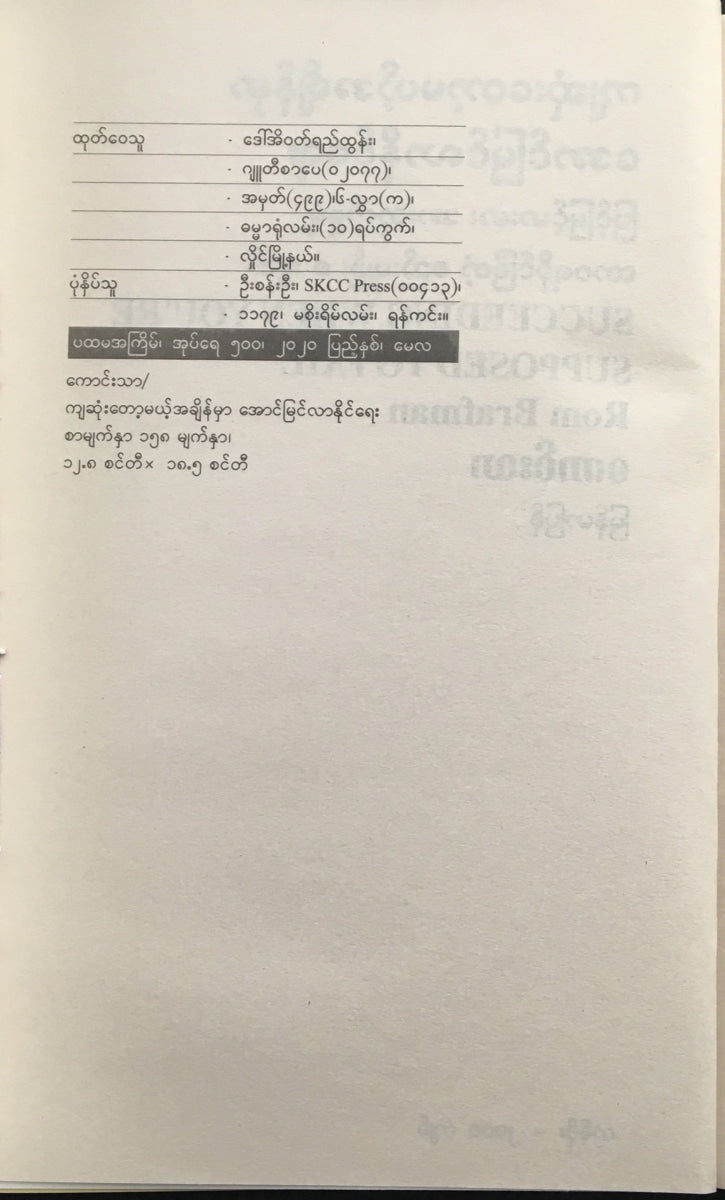 ထုတ်ဝေသူ - ဒေါ်အိဝတ်ရည်ထွန်း၊
- ဂျူတီစာပေ(၀၂၀၇၇)၊
- အမှတ်(၄၉၉)၊၆-လွှာ(က)၊
- ဓမ္မာရုံလမ်း၊(၁၀)ရပ်ကွက်၊
- လှိုင်မြို့နယ်။
ပုံနှိပ်သူ - ဦးစန်းဦး၊ SKCC Press(၀၀၄၁၃)၊
- ၁၁၇၉၊ မစိုးရိမ်လမ်း၊ ရန်ကင်း။
ပထမအကြိမ်၊ အုပ်ရေ ၅၀၀၊ ၂၀၂၀ ပြည့်နှစ်၊ မေလ
ကောင်းသာ/
ကျဆုံးတော့မယ့်အချိန်မှာ အောင်မြင်လာနိုင်ရေး
စာမျက်နှာ ၁၅၈ မျက်နှာ၊
၁၂.၈ စင်တီ× ၁၈.၅ စင်တီ